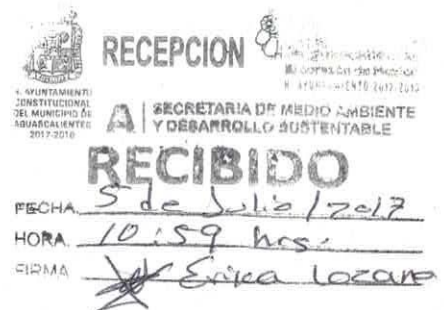 RECEPCION
H. AYUNTAMIENTO
CONSTITUCIONAL
DEL MUNICIPIO DE
AGUASCALIENTES
2017-2019
A | SECRETARIA DE MEDIO AMBIENTE
Y DESARROLLO SUSTENTABLE
RECIBIDO
FECHA 5 de Julio / 2017
HORA 10:59 hrs.
FIRMA Erica Lozano